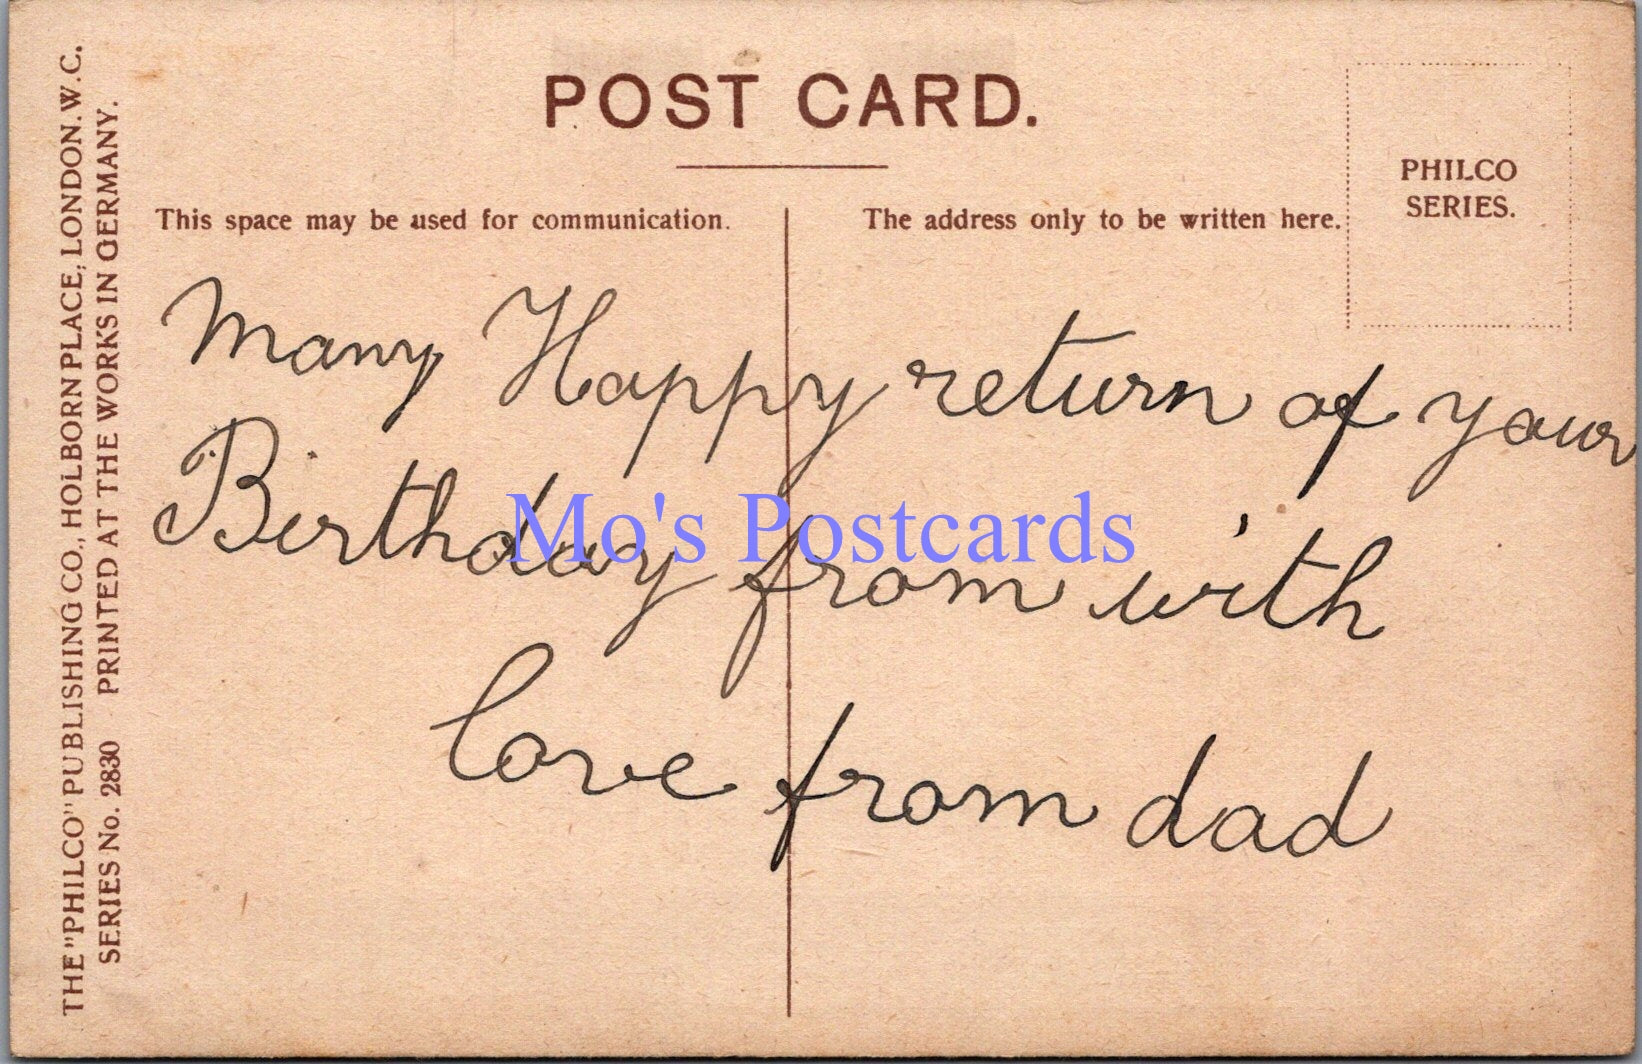 POST CARD.
This space may be used for communication.
The address only to be written here.
PHILCO
SERIES.
THE "PHILCO" PUBLISHING CO., HOLBORN PLACE, LONDON. W.C.
SERIES No. 2830 PRINTED AT THE WORKS IN GERMANY.
Many Happy return of your
Birthday from with
love from dad
Mo's Postcards